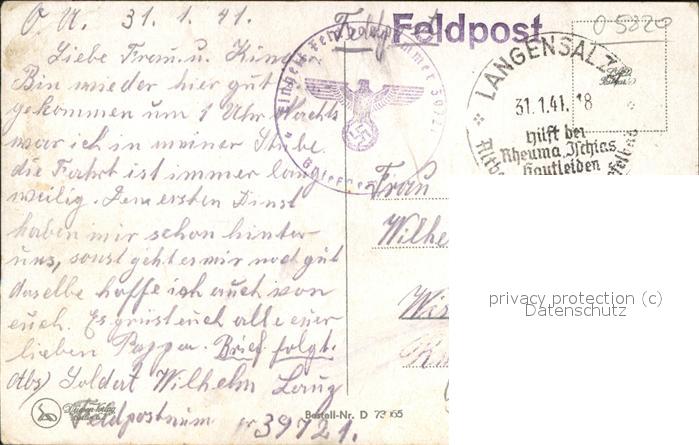 O.U. 31.1.41.
Liebe Frau u. Kinder
Bin wieder hier gut
gekommen um 1 Uhr Nachts
war ich in meiner Stube.
die Fahrt ist immer lang
weilig. Den ersten Dinst
haben wir schon hinter
uns, sonst geht es mir noch gut
daselbe hoffe ich auch von
euch. Es grüst euch alle euer
lieben Pappa. Brief folgt.
Abs) Soldat Wilhelm Lang
Feldpostnum 39721.
Feldpost
Feldpost
LANGENSALZA
31.1.41. 18
Hilft bei
Rheuma, Ischias
Hautleiden
05820
Frau
Wilhe
privacy protection (c)
Datenschutz
Bestell-Nr. D 73 65